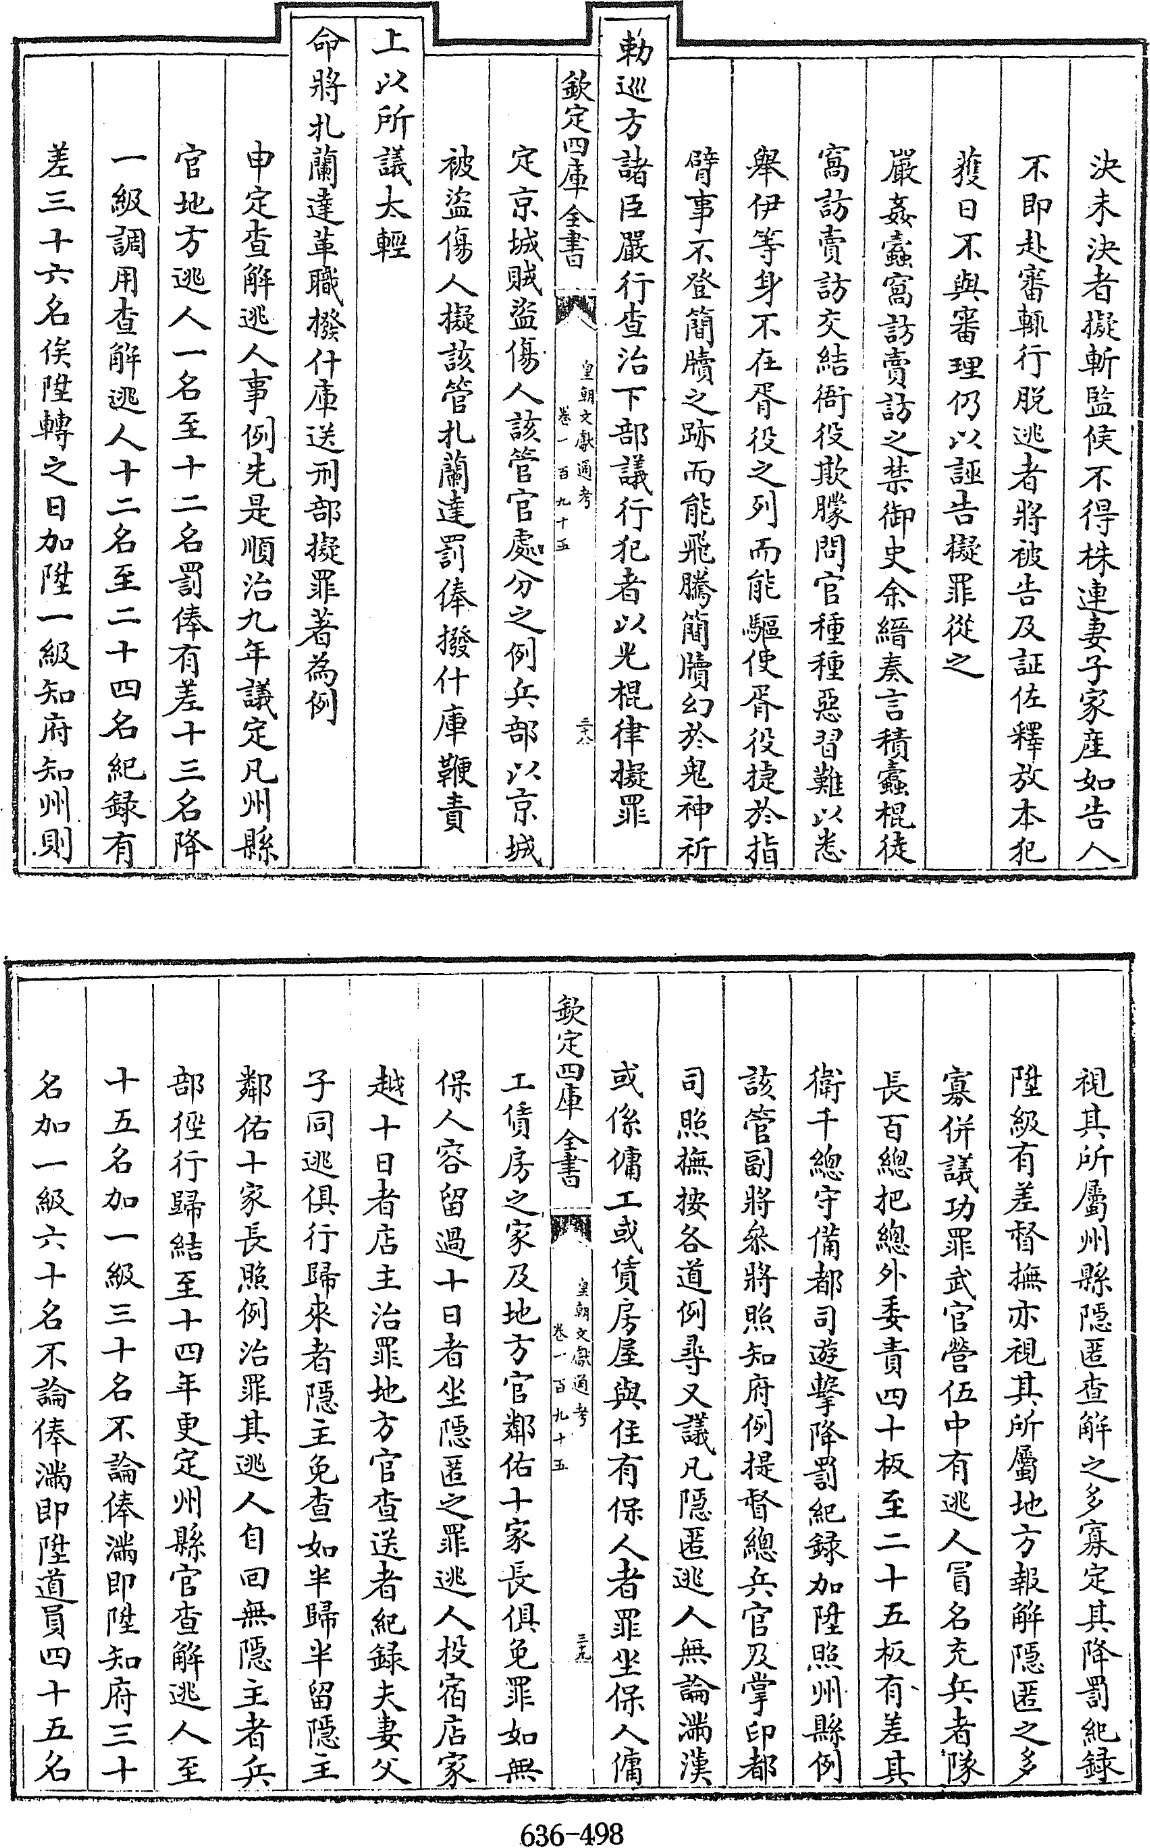 決未決者擬斬監候不得株連妻子家産如告人
不即赴審輒行脱逃者將被告及証佐釋放本犯
獲日不與審理仍以誣告擬罪從之
嚴姦蠹窩訪賣訪之禁御史余縉奏言積蠹棍徒
窩訪賣訪交結衙役欺朦問官種種惡習難以悉
舉伊等身不在胥役之列而能驅使胥役捷於指
臂事不登簡牘之跡而能飛騰簡牘幻於鬼神祈
勅巡方諸臣嚴行查治下部議行犯者以光棍律擬罪
欽定四庫全書
皇朝文獻通考
卷一百九十五
三十八
定京城賊盜傷人該管官處分之例兵部以京城
被盜傷人擬該管扎蘭達罰俸撥什庫鞭責
上以所議太輕
命將扎蘭達革職撥什庫送刑部擬罪著為例
申定查解逃人事例先是順治九年議定凡州縣
官地方逃人一名至十二名罰俸有差十三名降
一級調用查解逃人十二名至二十四名紀録有
差三十六名俟陞轉之日加陞一級知府知州則
視其所屬州縣隱匿查解之多寡定其降罰紀録
陞級有差督撫亦視其所屬地方報解隱匿之多
寡併議功罪武官營伍中有逃人冒名充兵者隊
長百總把總外委責四十板至二十五板有差其
衛千總守備都司遊擊降罰紀録加陞照州縣例
該管副將叅將照知府例提督總兵官及掌印都
司照撫按各道例尋又議凡隱匿逃人無論滿漢
或係傭工或賃房屋與住有保人者罪坐保人傭
欽定四庫全書
皇朝文獻通考
卷一百九十五
三十九
工賃房之家及地方官鄰佑十家長俱免罪如無
保人容留過十日者坐隱匿之罪逃人投宿店家
越十日者店主治罪地方官查送者紀録夫妻父
子同逃俱行歸來者隱主免查如半歸半留隱主
鄰佑十家長照例治罪其逃人自回無隱主者兵
部徑行歸結至十四年更定州縣官查解逃人至
十五名加一級三十名不論俸滿即陞知府三十
名加一級六十名不論俸滿即陞道員四十五名
636-498